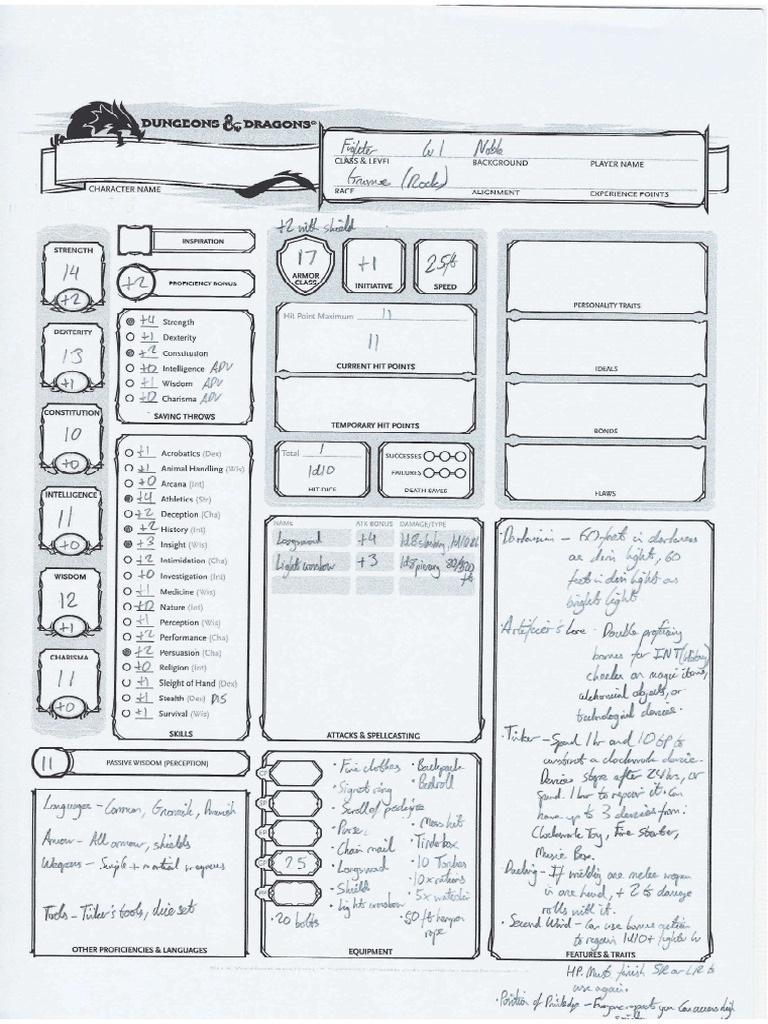 DUNGEONS & DRAGONS®
CHARACTER NAME
Fighter Lv 1 Noble
CLASS & LEVEL BACKGROUND PLAYER NAME
Gnome (Rock)
RACE ALIGNMENT EXPERIENCE POINTS
STRENGTH
14
+2
DEXTERITY
13
+1
CONSTITUTION
10
+0
INTELLIGENCE
11
+0
WISDOM
12
+1
CHARISMA
11
+0
INSPIRATION
+2 PROFICIENCY BONUS
+4 Strength
+1 Dexterity
+2 Constitution
+0 Intelligence ADV
+1 Wisdom ADV
+0 Charisma ADV
SAVING THROWS
+1 Acrobatics (Dex)
+1 Animal Handling (Wis)
+0 Arcana (Int)
+4 Athletics (Str)
+2 Deception (Cha)
+2 History (Int)
+3 Insight (Wis)
+2 Intimidation (Cha)
+0 Investigation (Int)
+1 Medicine (Wis)
+0 Nature (Int)
+1 Perception (Wis)
+2 Performance (Cha)
+2 Persuasion (Cha)
+0 Religion (Int)
+1 Sleight of Hand (Dex)
+1 Stealth (Dex) DIS
+1 Survival (Wis)
SKILLS
11 PASSIVE WISDOM (PERCEPTION)
Languages - Common, Gnomish,
Armour - All armour, shields
Weapons - Simple + martial weapons
Tools - Tinker's tools, dice set
OTHER PROFICIENCIES & LANGUAGES
+2 with shield
17
ARMOR CLASS
+1
INITIATIVE
25ft
SPEED
Hit Point Maximum 11
11
CURRENT HIT POINTS
TEMPORARY HIT POINTS
Total 1
1d10
HIT DICE
SUCCESSES
FAILURES
DEATH SAVES
NAME ATK BONUS DAMAGE/TYPE
Longsword +4 1d8 slashing, 1d10
Light crossbow +3 1d8 piercing 80/320
ft
ATTACKS & SPELLCASTING
CP
SP
EP
GP 25
PP
· Fine clothes
· Signet ring
· Scroll of pedigree
· Purse
· Chain mail
· Longsword
· Shield
· Lights crossbow
· 20 bolts
· Backpack
· Bedroll
· Mess kit
· Tinderbox
· 10 Torches
· 10x rations
· 5x waterskin
· 50 ft hempen
rope
EQUIPMENT
PERSONALITY TRAITS
IDEALS
BONDS
FLAWS
· Darkvision - 60 feet in darkness
as dim lights, 60
feet in dim lights as
brights lights
· Artificer's Lore - Double proficiency
bonus for INT (History)
checks on magic items,
alchemical objects, or
technological devices.
· Tinker - Spend 1 hr and 10 gp to
construct a clockwork device.
Devices stops after 24hrs, or
spend 1 hr to repair it. Can
have up to 3 devices from:
Clockwork Toy, Fire Starter,
Music Box.
· Dueling - If wielding one melee weapon
in one hand, + 2 to damage
rolls with it.
· Second Wind - Can use bonus action
to regain 1d10 + fighter lv
FEATURES & TRAITS
HP. Must finish SR or LR to
use again.
· Position of Privilege -